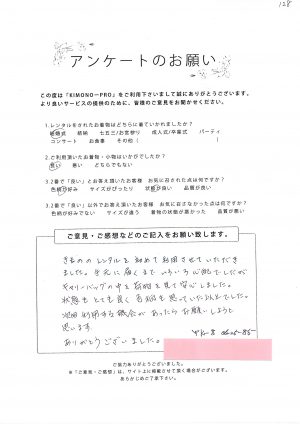 128
アンケートのお願い
この度は「KIMONO-PRO」をご利用下さいまして誠にありがとうございます。
より良いサービスの提供のために、皆様のご意見をお聞かせください。
1.レンタルをされたお着物はどちらに着ていかれましたか?
結婚式 結納 七五三/お宮参り 成人式/卒業式 パーティ
コンサート お食事 その他( )
2.ご利用頂いたお着物・小物はいかがでしたか?
良い 悪い どちらでもない
3.2番で「良い」とお答え頂いたお客様 お気に召された点は何ですか?
色柄が好み サイズがぴったり 状態が良い 品質が良い
3.2番で「良い」以外でお答え頂いたお客様 お気に召さなかった点は何ですか?
色柄が好みでない サイズが違う 着物の状態が悪かった 品質が悪い
ご意見・ご感想などのご記入をお願い致します。
きもののレンタルを初めて利用させていただき
ました。手元に届くまでいろいろ心配でしたが
キャリーバッグの中を荷物を見て安心しました。
状態もとても良く
次回利用する機会があったらお願いしようと
思います。
ありがとうございました。
ご協力ありがとうございました。
※「ご意見・ご感想」は、サイト上に掲載させて頂く場合がございます。
あらかじめご了承下さい。